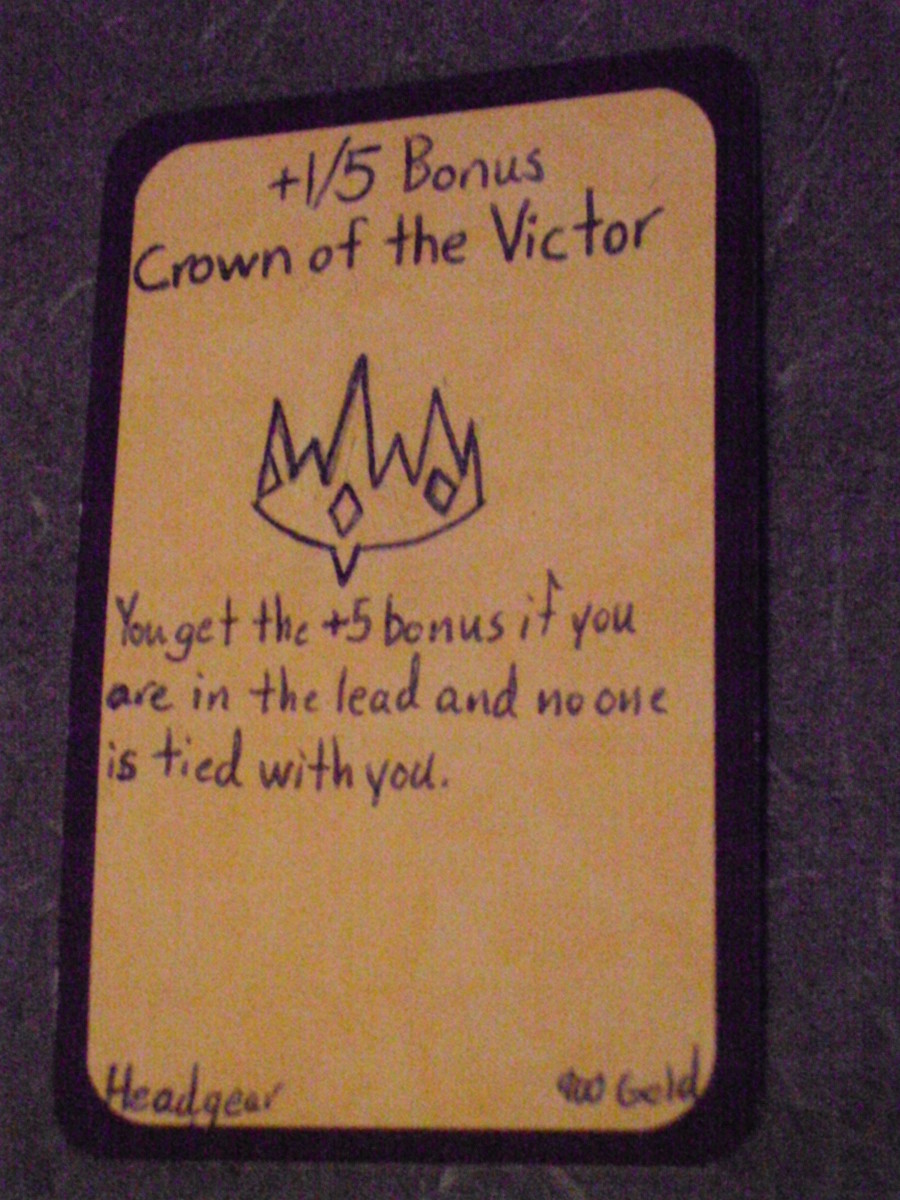 +1/5 Bonus
Crown of the Victor
You get the +5 bonus if you
are in the lead and no one
is tied with you.
Headgear
Gold